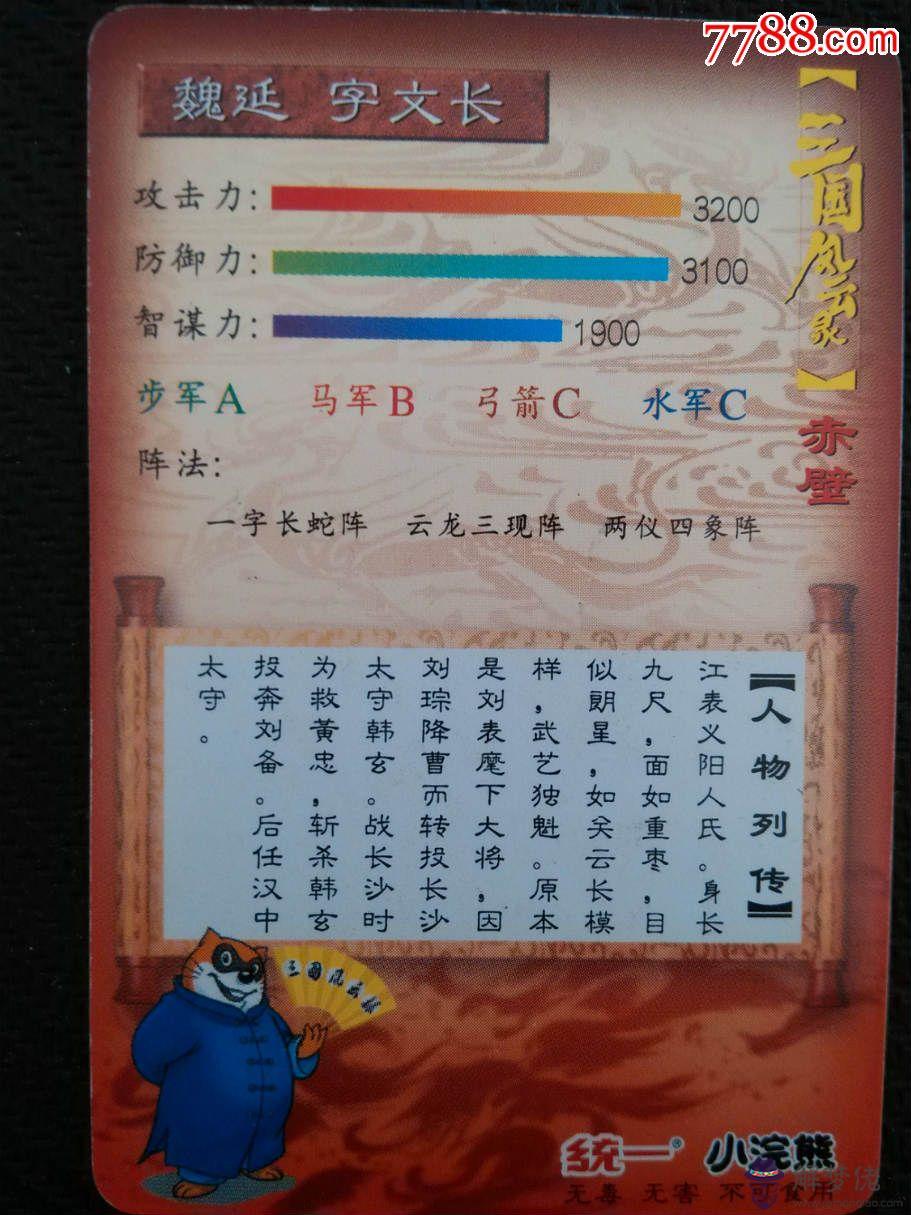 7788.com
魏延 字文长
【三国风云录】
赤壁
攻击力: 3200
防御力: 3100
智谋力: 1900
步军A 马军B 弓箭C 水军C
阵法:
一字长蛇阵 云龙三现阵 两仪四象阵
【人物列传】
江表义阳人氏。身长
九尺,面如重枣,目
似朗星,如关云长模
样,武艺独魁。原本
是刘表麾下大将,因
刘琮降曹而转投长沙
太守韩玄。战长沙时
为救黄忠,斩杀韩玄
投奔刘备。后任汉中
太守。
三国风云录
统一® 小浣熊
无毒 无害 不可食用